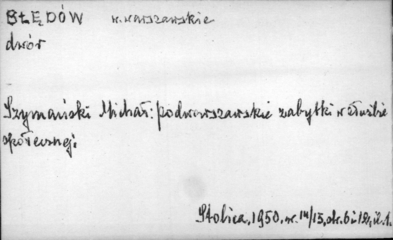 BŁĘDÓW w. warszawskie
dwór
Szymański Michał: podwarszawskie zabytki w służbie
społecznej.
Stolica, 1950, nr. 14/15, str. 6 i 15, il. 1.